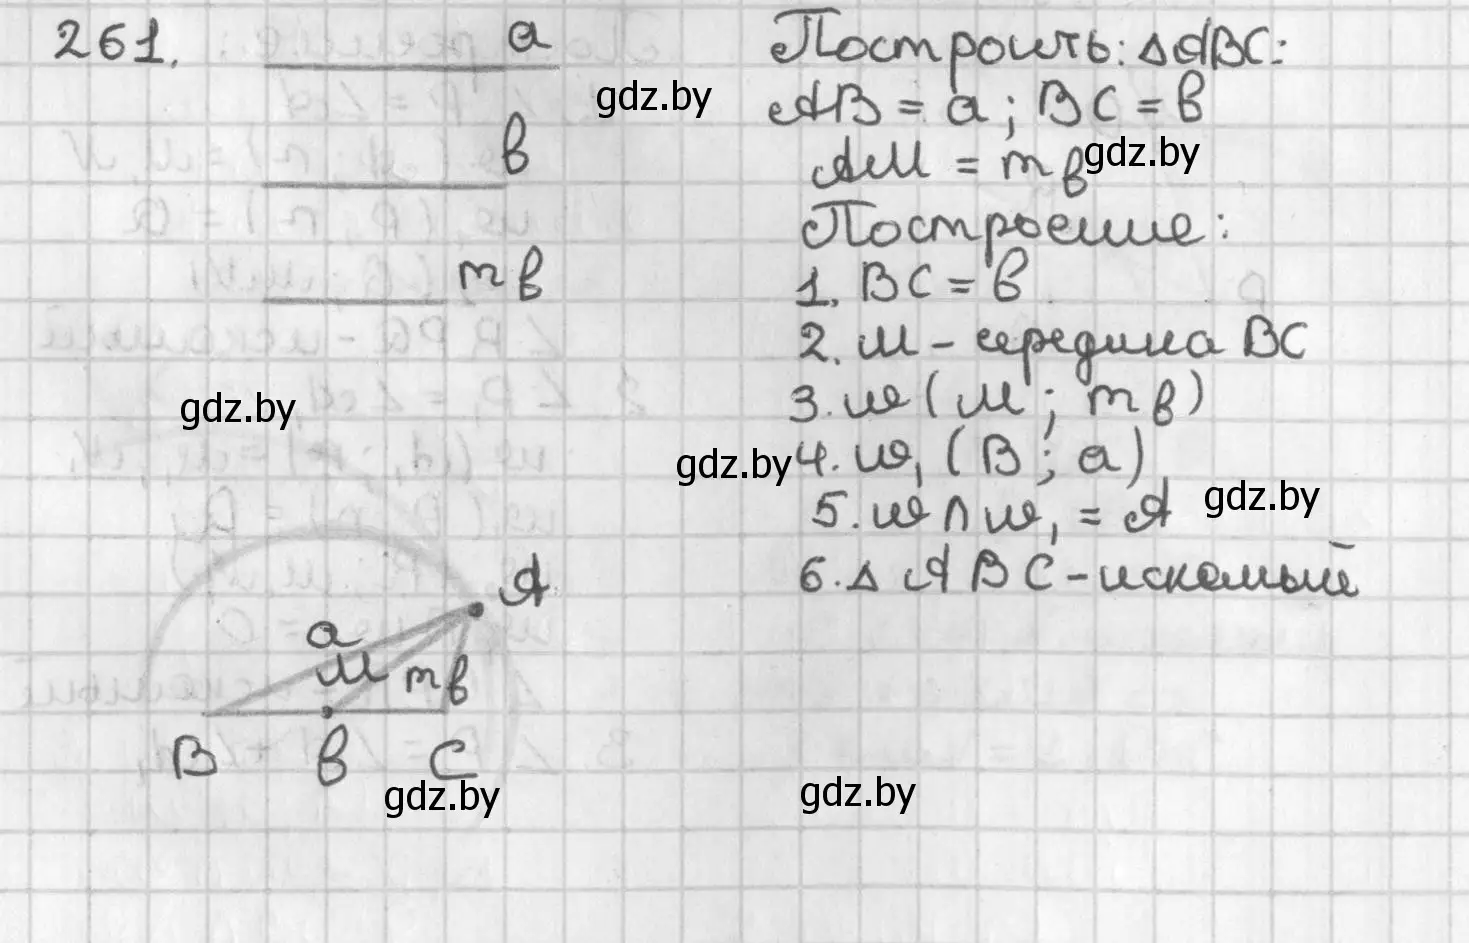 261.
a
в
mв
Построить: △ABC:
AB = a; BC = в
AM = mв
Построение:
1. BC = в
2. M - середина BC
3. ω(M; mв)
4. ω₁(B; a)
5. ω∩ω₁ = A
6. △ABC - искомый
A
a
M mв
B в C
gdz.by
gdz.by
gdz.by
gdz.by
gdz.by
gdz.by
gdz.by